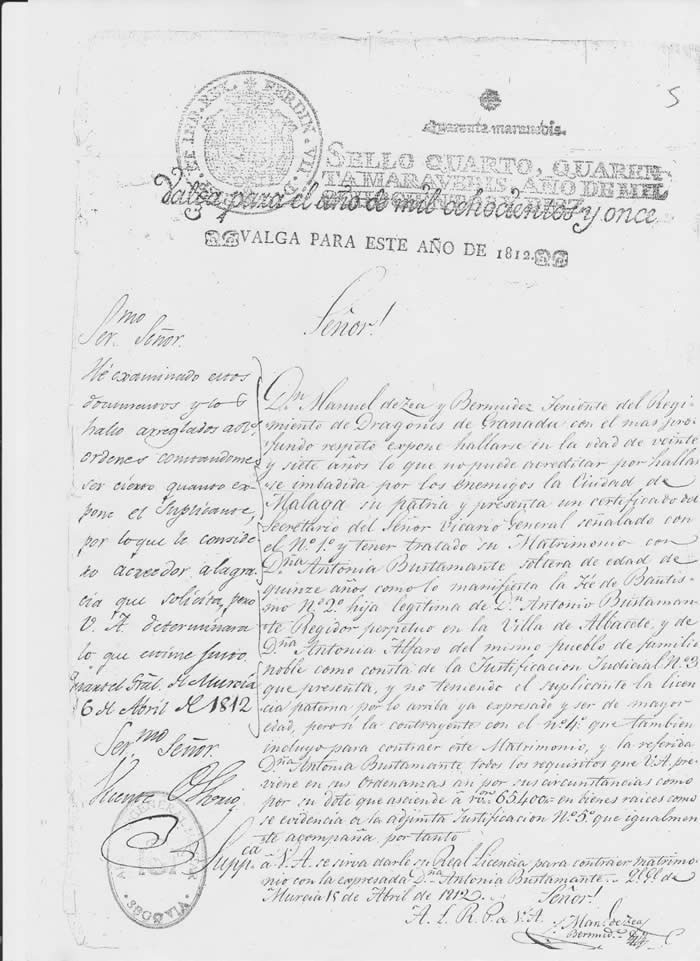 5
Quarenta maravedis.
FERDIN. VII. D. G. HISP. ET IND. REX.
SELLO QUARTO, QUAREN-
TA MARAVEDIS, AÑO DE MIL
OCHOCIENTOS Y DIEZ.
Valga para el año de mil ochocientos y once
VALGA PARA ESTE AÑO DE 1812.
Ser.mo Señor.
Hé examinado estos
documentos y los
hallo arreglados a las
ordenes constandome
ser cierto quanto ex-
pone el Suplicante,
por lo que le conside-
ro acreedor a la gra-
cia que solicita, pero
V. A. determinara
lo que estime justo.
Quartel Gral. de Murcia
6 de Abril de 1812
Ser.mo Señor
Señor!
D.n Manuel de Zea y Bermudez Teniente del Regi-
miento de Dragones de Granada con el mas pro-
fundo respeto expone hallarse en la edad de veinte
y siete años lo que no puede acreditar por hallar-
se imbadida por los enemigos la Ciudad de
Malaga su patria y presenta un certificado del
Secretario del Señor Vicario General señalado con
el N.º 1.º y tener tratado su Matrimonio con
D.ña Antonia Bustamante soltera de edad de
quinze años como lo manifiesta la Fée de Bautis-
mo N.º 2.º hija legitima de D.n Antonio Bustaman-
te Regidor perpetuo en la Villa de Albacete, y de
D.ña Antonia Alfaro del mismo pueblo de familia
noble como consta de la Justificacion Judicial N.º 3
que presenta, y no teniendo el suplicante la licen-
cia paterna por lo arriba ya expresado y ser de mayor
edad, pero si la contrayente con el n.º 4.º que tambien
incluyo para contraer este Matrimonio, y la referida
D.ña Antonia Bustamante todos los requisitos que V.A. pre-
viene en sus Ordenanzas asi por sus circunstancias como
por su dote que asciende á r.on 65.400 en bienes raices como
se evidencia de la adjunta Justificacion N.º 5.º que igualmen-
te acompaña por tanto
Supp.ca á V.A. se sirva darle su Real Licencia para contraer matrimo-
nio con la expresada D.ña Antonia Bustamante.
Murcia 15 de Abril de 1812.
Señor!
A. L. R. P. a V.A.
Man.l de Zea
Bermud.z